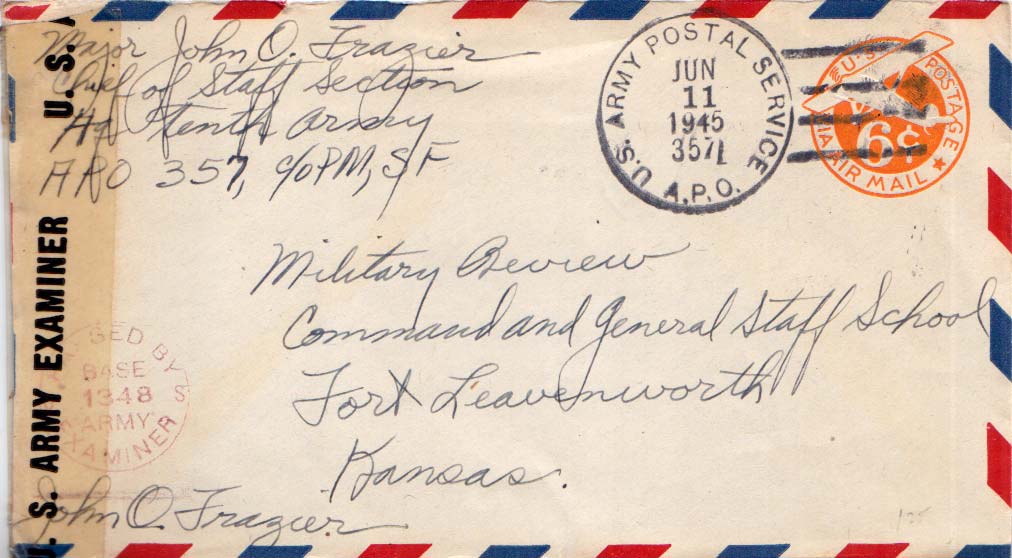 Major John O. Frazier
Chief of Staff Section
Hq Tenth Army
APO 357, c/o PM, SF
U.S. ARMY POSTAL SERVICE
JUN
11
1945
357
A.P.O.
U.S. POSTAGE
6¢
VIA AIR MAIL
Military Review
Command and General Staff School
Fort Leavenworth
Kansas.
U. S. ARMY EXAMINER U. S.
SED BY
BASE
1348 S
ARMY
EXAMINER
John O. Frazier